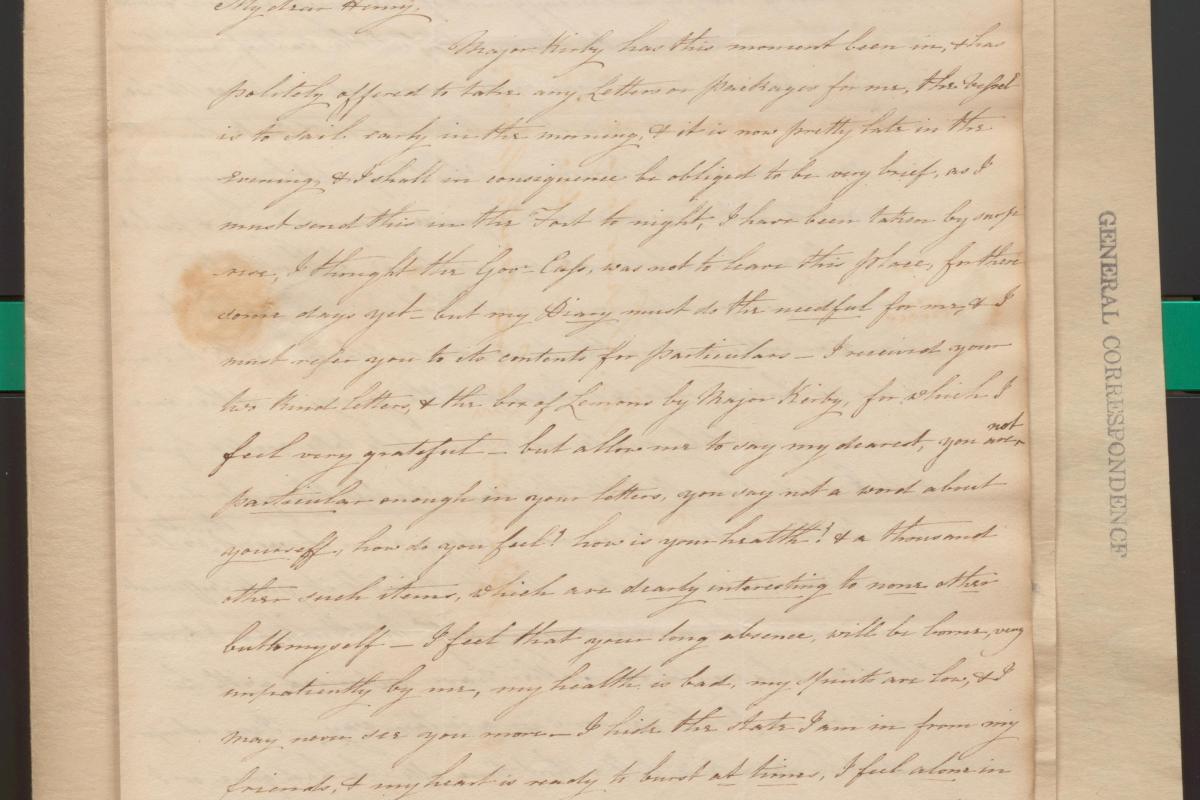 My dear Henry,
Major Kirby has this moment been in, & has
politely offered to take any Letters or packages for me, the Vessel
is to sail early in the morning, & it is now pretty late in the
evening, & I shall in consequence be obliged to be very brief, as I
must send this in the Fort to night, I have been taken by surp
rise, I thought the Gov. Cass, was not to leave this place, for these
some days yet – but my Diary must do the needful for me, & I
must refer you to its contents for particulars – I received your
two kind letters, & the box of Lemons by Major Kirby, for which I
feel very grateful – but allow me to say my dearest, you are
not
particular enough in your letters, you say not a word about
yourself, how do you feel? how is your health? & a thousand
other such items, which are dearly interesting to none other
but to myself – I feel that your long absence, will be borne, very
impatiently by me, my health is bad, my spirits are low, & I
may never see you more – I hide the state I am in from my
friends, & my heart is ready to burst at times, I feel alone in
GENERAL CORRESPONDENCE